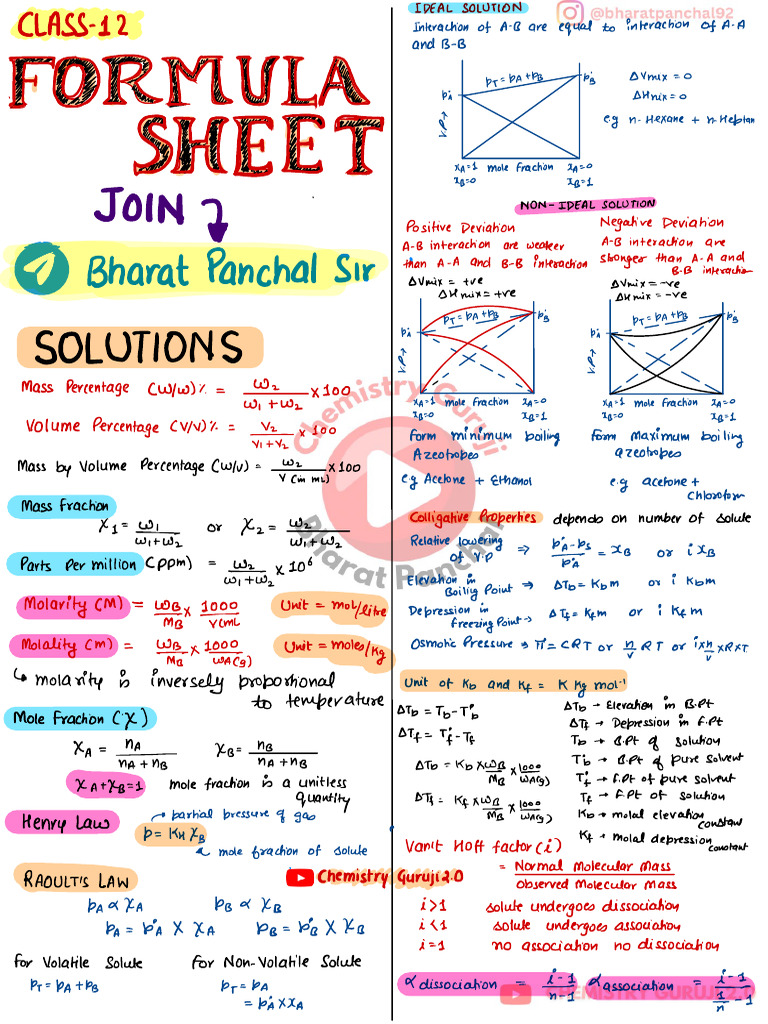 CLASS-12
FORMULA
SHEET
JOIN
Bharat Panchal Sir
SOLUTIONS
Mass Percentage (w/w)% = w₂/(w₁+w₂) ×100
Volume Percentage (V/V)% = V₂/(V₁+V₂) ×100
Mass by Volume Percentage (w/v) = w₂/V(in mL) ×100
Mass fraction
χ₁ = w₁/(w₁+w₂) or χ₂ = w₂/(w₁+w₂)
Parts Per million (ppm) = w₂/(w₁+w₂) × 10⁶
Molarity (M) = wB/MB × 1000/V(mL Unit = mol/litre
Molality (m) = wB/MB × 1000/wA(g) Unit = moles/kg
↳ molarity is inversely proportional
to temperature
Mole Fraction (χ)
χA = nA/(nA+nB) χB = nB/(nA+nB)
χA+χB=1 mole fraction is a unitless
quantity
Henry Law → partial pressure of gas
p = KH χB
mole fraction of solute
RAOULT'S LAW
pA ∝ χA pB ∝ χB
pA = p°A × χA pB = p°B × χB
for Volatile Solute for Non-Volatile Solute
pT = pA+pB pT = pA
= p°A×χA
IDEAL SOLUTION @bharatpanchal92
Interaction of A-B are equal to interaction of A-A
and B-B
pT = pA+pB
p°A p°B
V.P→
ΔVmix = 0
ΔHmix = 0
e.g n-Hexane + n-Heptan
χA=1 mole fraction χA=0
χB=0 χB=1
NON-IDEAL SOLUTION
Positive Deviation
A-B interaction are weaker
than A-A and B-B interaction
ΔVmix = +ve
ΔHmix = +ve
pT = pA+pB
p°A p°B
V.P→
χA=1 mole fraction χA=0
χB=0 χB=1
form minimum boiling
Azeotropes
e.g Acetone + Ethanol
Negative Deviation
A-B interaction are
stronger than A-A and
B-B interaction
ΔVmix = -ve
ΔHmix = -ve
pT = pA+pB
p°A p°B
V.P→
χA=1 mole fraction χA=0
χB=0 χB=1
form maximum boiling
azeotropes
e.g acetone +
chloroform
Colligative Properties depends on number of solute
Relative lowering
of V.p ⇒ (p°A-ps)/p°A = χB or iχB
Elevation in
Boiliy Point → ΔTb = Kbm or i Kbm
Depression in
freezing Point → ΔTf = Kfm or i Kfm
Osmotic Pressure → π = CRT or n/v RT or i×n/v ×R×T
Unit of Kb and Kf = K Kg mol⁻¹
ΔTb = Tb-T°b
ΔTf = T°f-Tf
ΔTb = Kb × wB/MB × 1000/wA(g)
ΔTf = Kf × wB/MB × 1000/wA(g)
ΔTb → Elevation in B.Pt
ΔTf → Depression in F.Pt
Tb → B.Pt of solution
T°b → B.Pt of pure solvent
T°f → f.Pt of pure solvent
Tf → F.Pt of solution
Kb → molal elevation
constant
Kf → molal depression
constant
Vanit Hoff factor (i)
= Normal Molecular Mass/Observed Molecular Mass
i>1 solute undergoes dissociation
i<1 solute undergoes association
i=1 no association no dissociation
α dissociation = (i-1)/(n-1) α association = (i-1)/(1/n -1)
Chemistry Guruji 2.0
Chemistry Guruji
Bharat Panchal
CHEMISTRY GURUJI 2.0